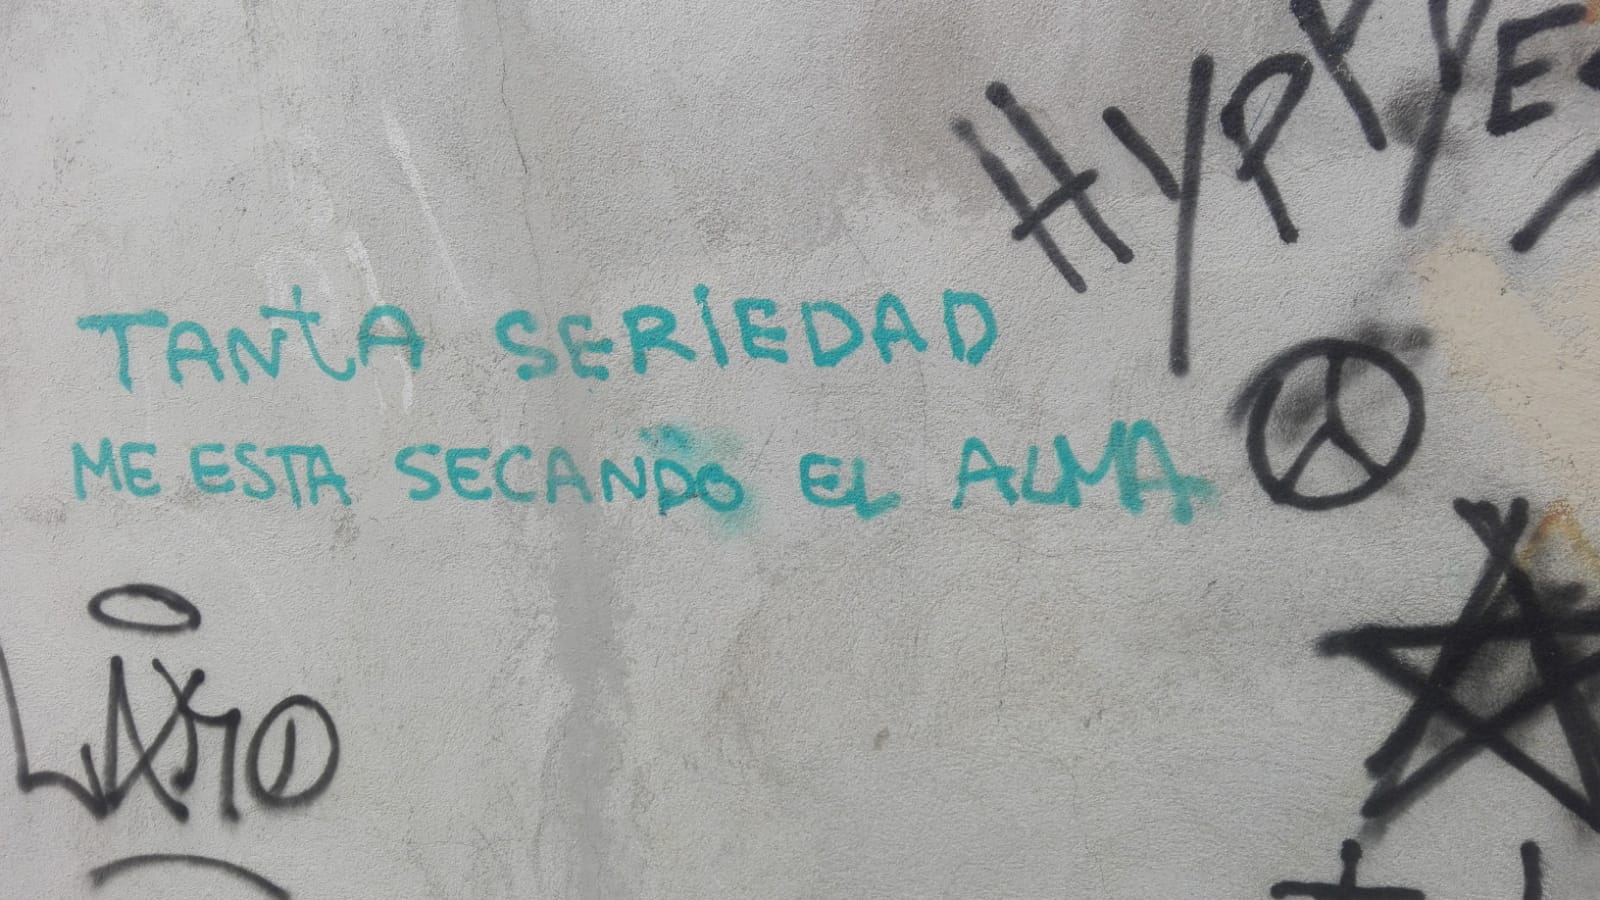 HYPPYES
TANTA SERIEDAD
ME ESTA SECANDO EL ALMA